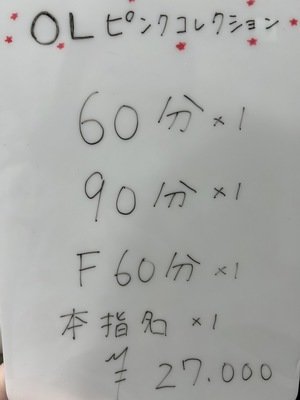 OLピンクコレクション
60分×1
90分×1
F60分×1
本指名×1
¥27.000